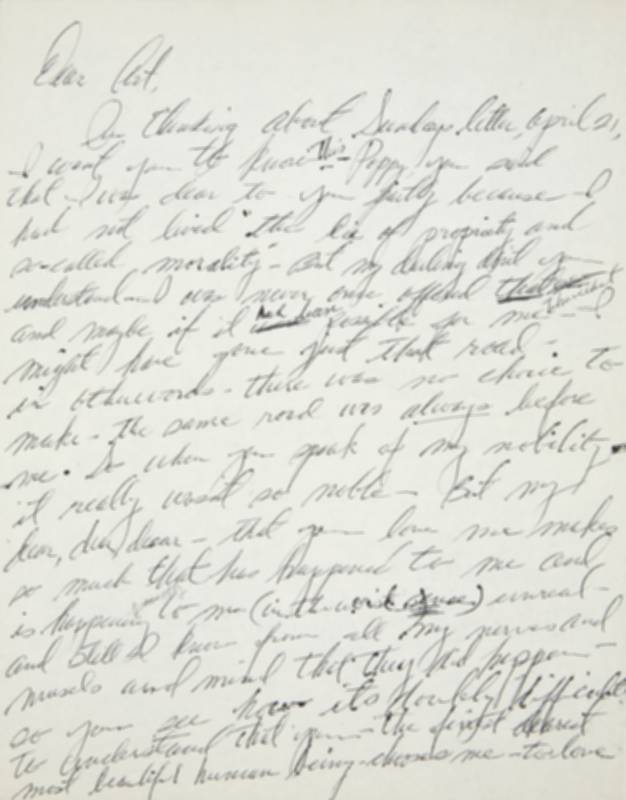 Dear Art,
In thinking about Sundays letter, April 21,
I want you to know this - Poppy, you said
that I was dear to you partly because I
had not lived "the lie of propriety and
so-called morality" - But my darling until you
understand - I was never once offered
and maybe if it had been possible for me - I
might have gone just that road -
in otherwords - there was no choice to
make - the same road was always before
me. So when you speak of my nobility -
it really wasn't so noble - But my
dear, dear, dear - that you love me makes
so much that has happened to me and
is happening to me (in the ) unreal -
and still I know from all my nerves and
musels and mind that they did happen -
so you see how its doubly difficult
to understand that you - the finest dearest
most beautiful human being - chooses me - to love